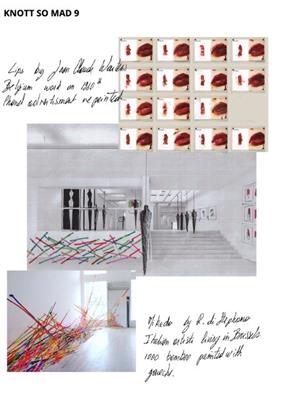 KNOTT SO MAD 9
Lips by Jean Claude
Belgium work on 1960"
advertisment repainted
Mikado by R. di Stephano
Italian artist living in Brussels
1000 bamboo painted with
gouache.